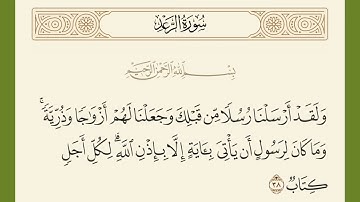 سُورَةُ الرَّعْدِ
بِسْمِ اللَّهِ الرَّحْمَٰنِ الرَّحِيمِ
وَلَقَدْ أَرْسَلْنَا رُسُلًا مِّن قَبْلِكَ وَجَعَلْنَا لَهُمْ أَزْوَٰجًا وَذُرِّيَّةً ۚ
وَمَا كَانَ لِرَسُولٍ أَن يَأْتِىَ بِـَٔايَةٍ إِلَّا بِإِذْنِ ٱللَّهِ ۗ لِكُلِّ أَجَلٍ
كِتَابٌ ٣٨